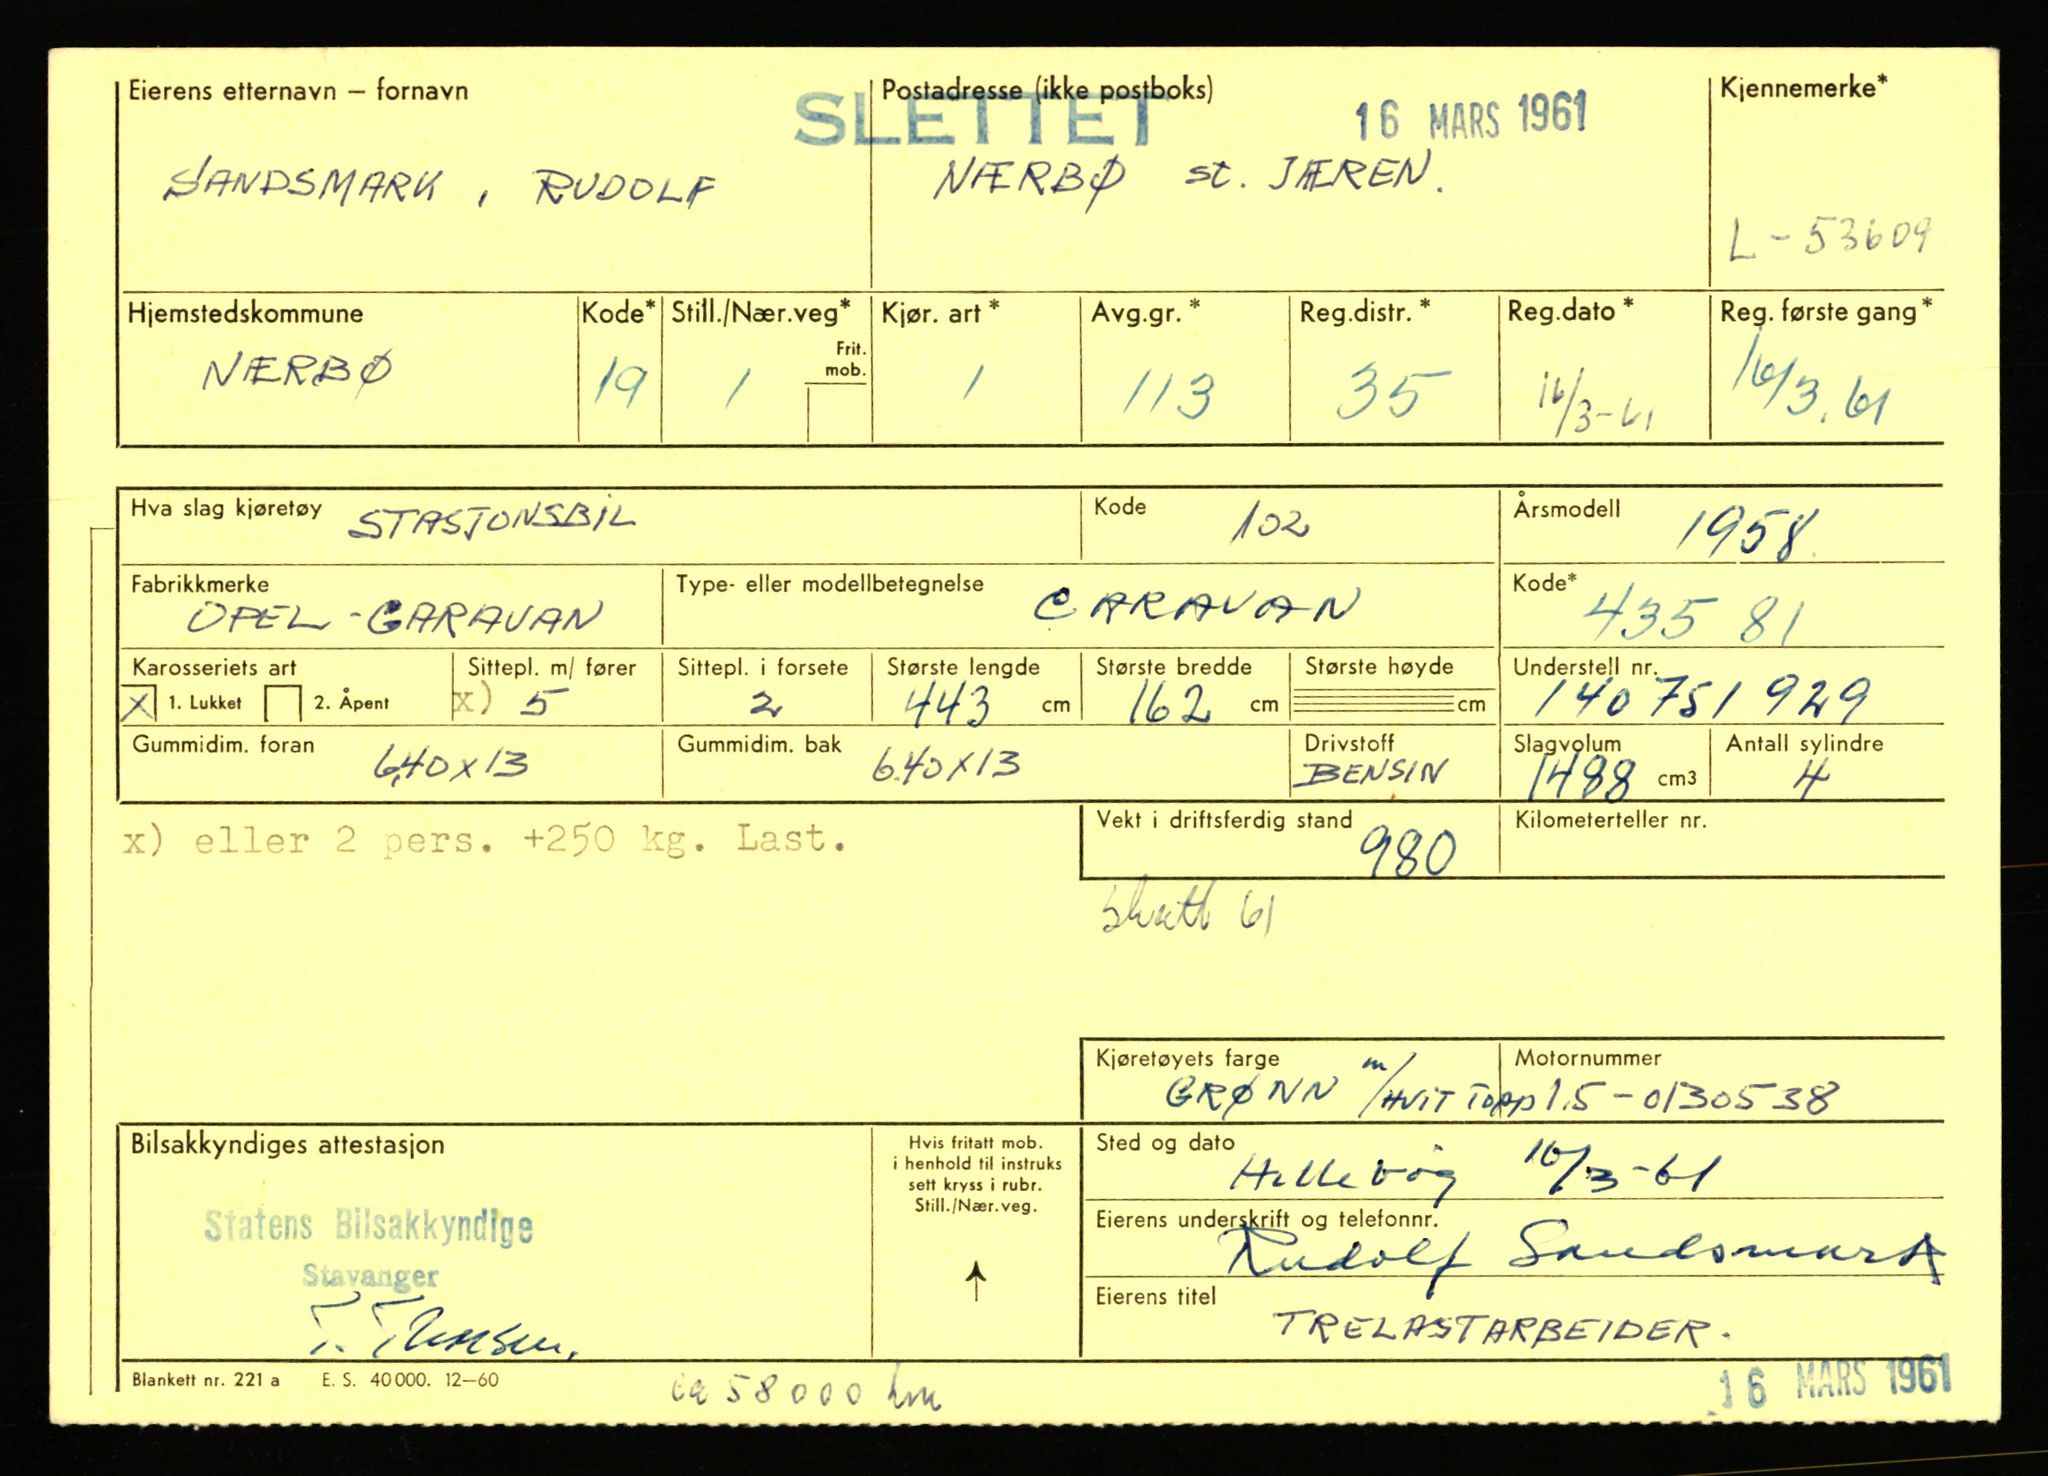 Eierens etternavn – fornavn Postadresse (ikke postboks) Kjennemerke*
SLETTET 16 MARS 1961
SANDSMARK, RUDOLF NÆRBØ st. JÆREN.
L - 53609
Hjemstedskommune Kode* Still./Nær.veg* Kjør. art * Avg.gr. * Reg.distr. * Reg.dato * Reg. første gang *
Frit. mob.
NÆRBØ 19 1 1 113 35 16/3-61 16/3.61
Hva slag kjøretøy STASJONSBIL Kode 102 Årsmodell 1958.
Fabrikkmerke Type- eller modellbetegnelse Kode*
OPEL - CARAVAN CARAVAN 435 81
Karosseriets art Sittepl. m/ fører Sittepl. i forsete Største lengde Største bredde Største høyde Understell nr.
X 1. Lukket 2. Åpent x) 5 2 443 cm 162 cm cm 140 751 929
Gummidim. foran Gummidim. bak Drivstoff Slagvolum Antall sylindre
6,40 x 13 6.40 x 13 BENSIN 1488 cm3 4
x) eller 2 pers. +250 kg. Last. Vekt i driftsferdig stand 980 Kilometerteller nr.
Skatt 61
Kjøretøyets farge Motornummer
GRØNN m/HVIT TOPP 1.5 - 0130538
Bilsakkyndiges attestasjon Hvis fritatt mob. Sted og dato
i henhold til instruks Hillevåg 16/3-61
sett kryss i rubr.
Still./Nær.veg.
Statens Bilsakkyndige Eierens underskrift og telefonnr.
Stavanger Rudolf Sandsmark
Eierens titel
TRELASTARBEIDER.
Blankett nr. 221 a E. S. 40 000. 12–60 ca 58000 km 16 MARS 1961